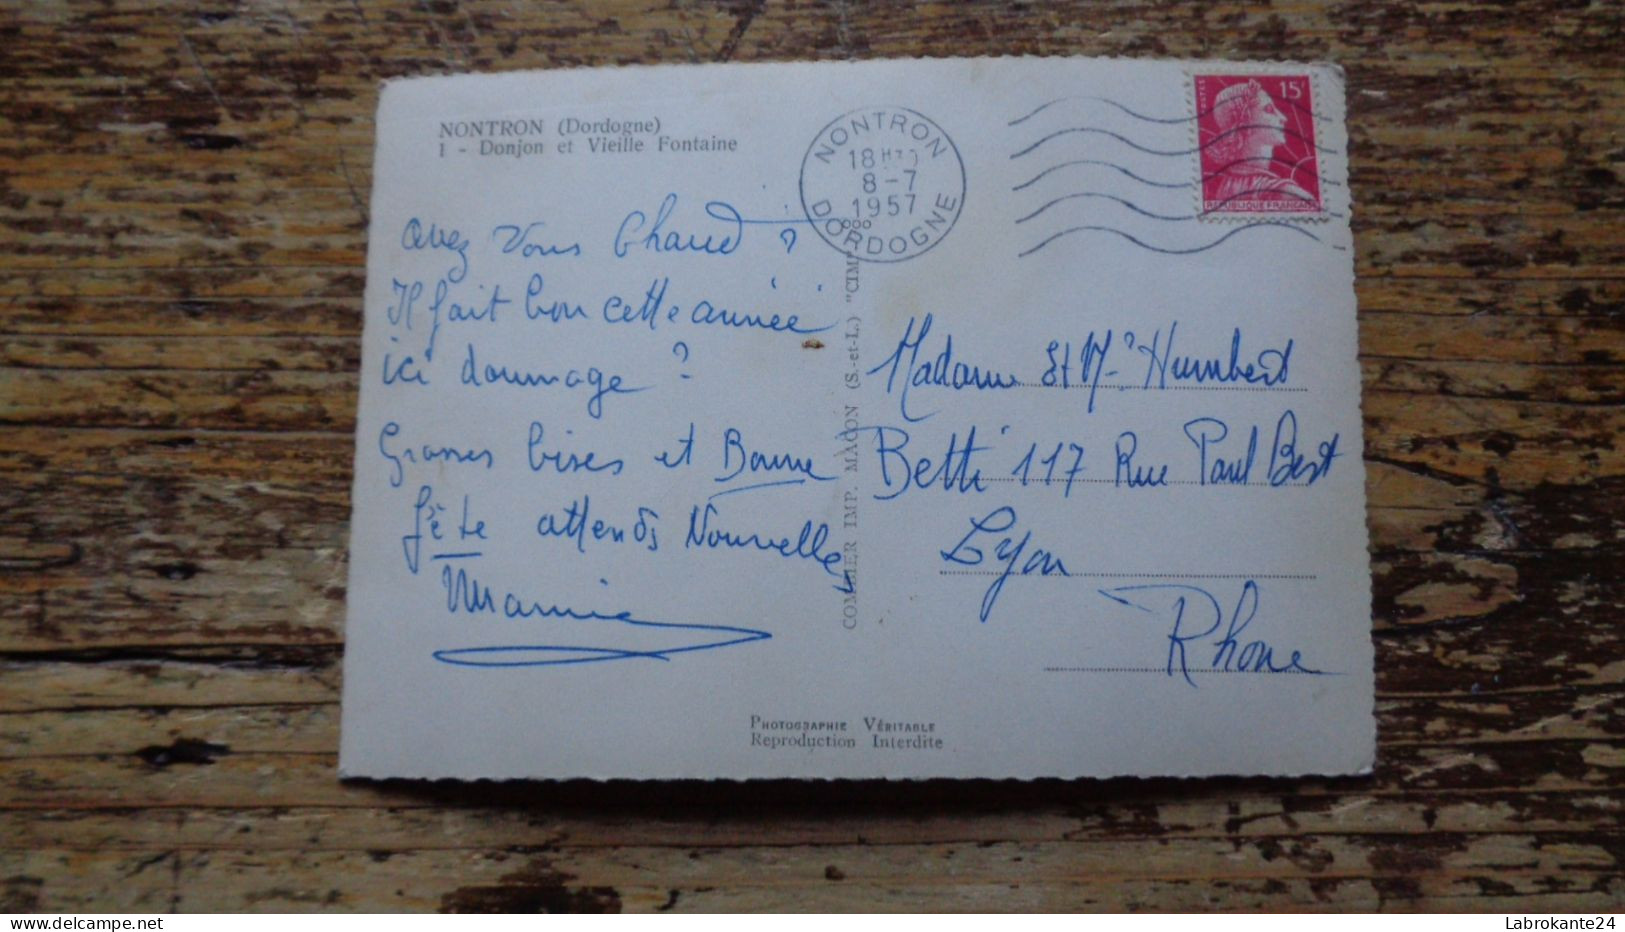 NONTRON (Dordogne)
1 - Donjon et Vieille Fontaine
NONTRON
18H30
8-7
1957
DORDOGNE
POSTES
15F
REPUBLIQUE FRANÇAISE
avez vous Chaud ?
Il fait bon cette année
ici dommage ?
Grosses bises et Bonne
fête attends Nouvelles
Mamie
COMBIER IMP. MACON (S.-et-L.) "CIM"
Madame et Mr Humbert
Betti 117 Rue Paul Bert
Lyon
Rhone
PHOTOGRAPHIE VÉRITABLE
Reproduction Interdite
Labrokante24